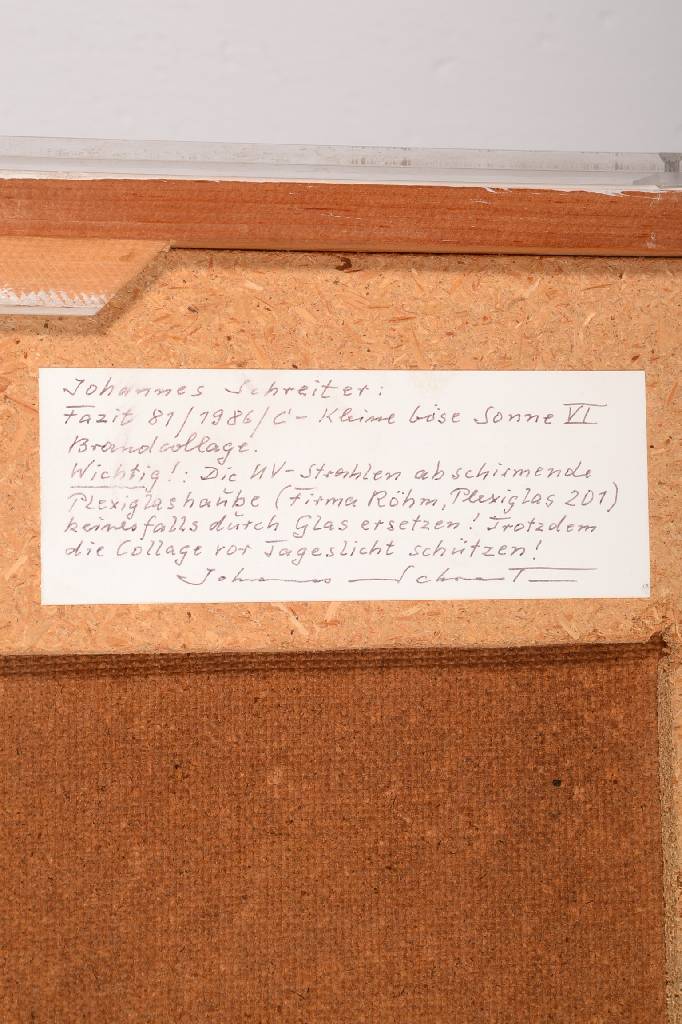 Johannes Schreiter:
Fazit 81/1986/C - Kleine böse Sonne VI
Brandcollage.
Wichtig!: Die UV-Strahlen abschirmende
Plexiglashaube (Firma Röhm, Plexiglas 201)
keinesfalls durch Glas ersetzen! Trotzdem
die Collage vor Tageslicht schützen!
Johannes Schreiter